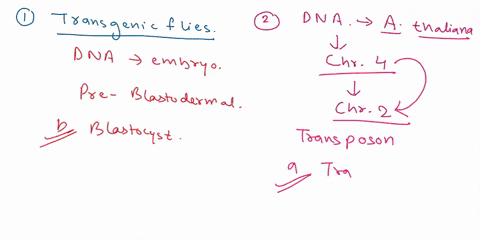 ① Transgenic flies.
DNA → embryo.
Pre- Blastodermal.
b Blastocyst.
② DNA. → A. thaliana
↓
Chr. 4
↓
Chr. 2
Transposon
a Tra